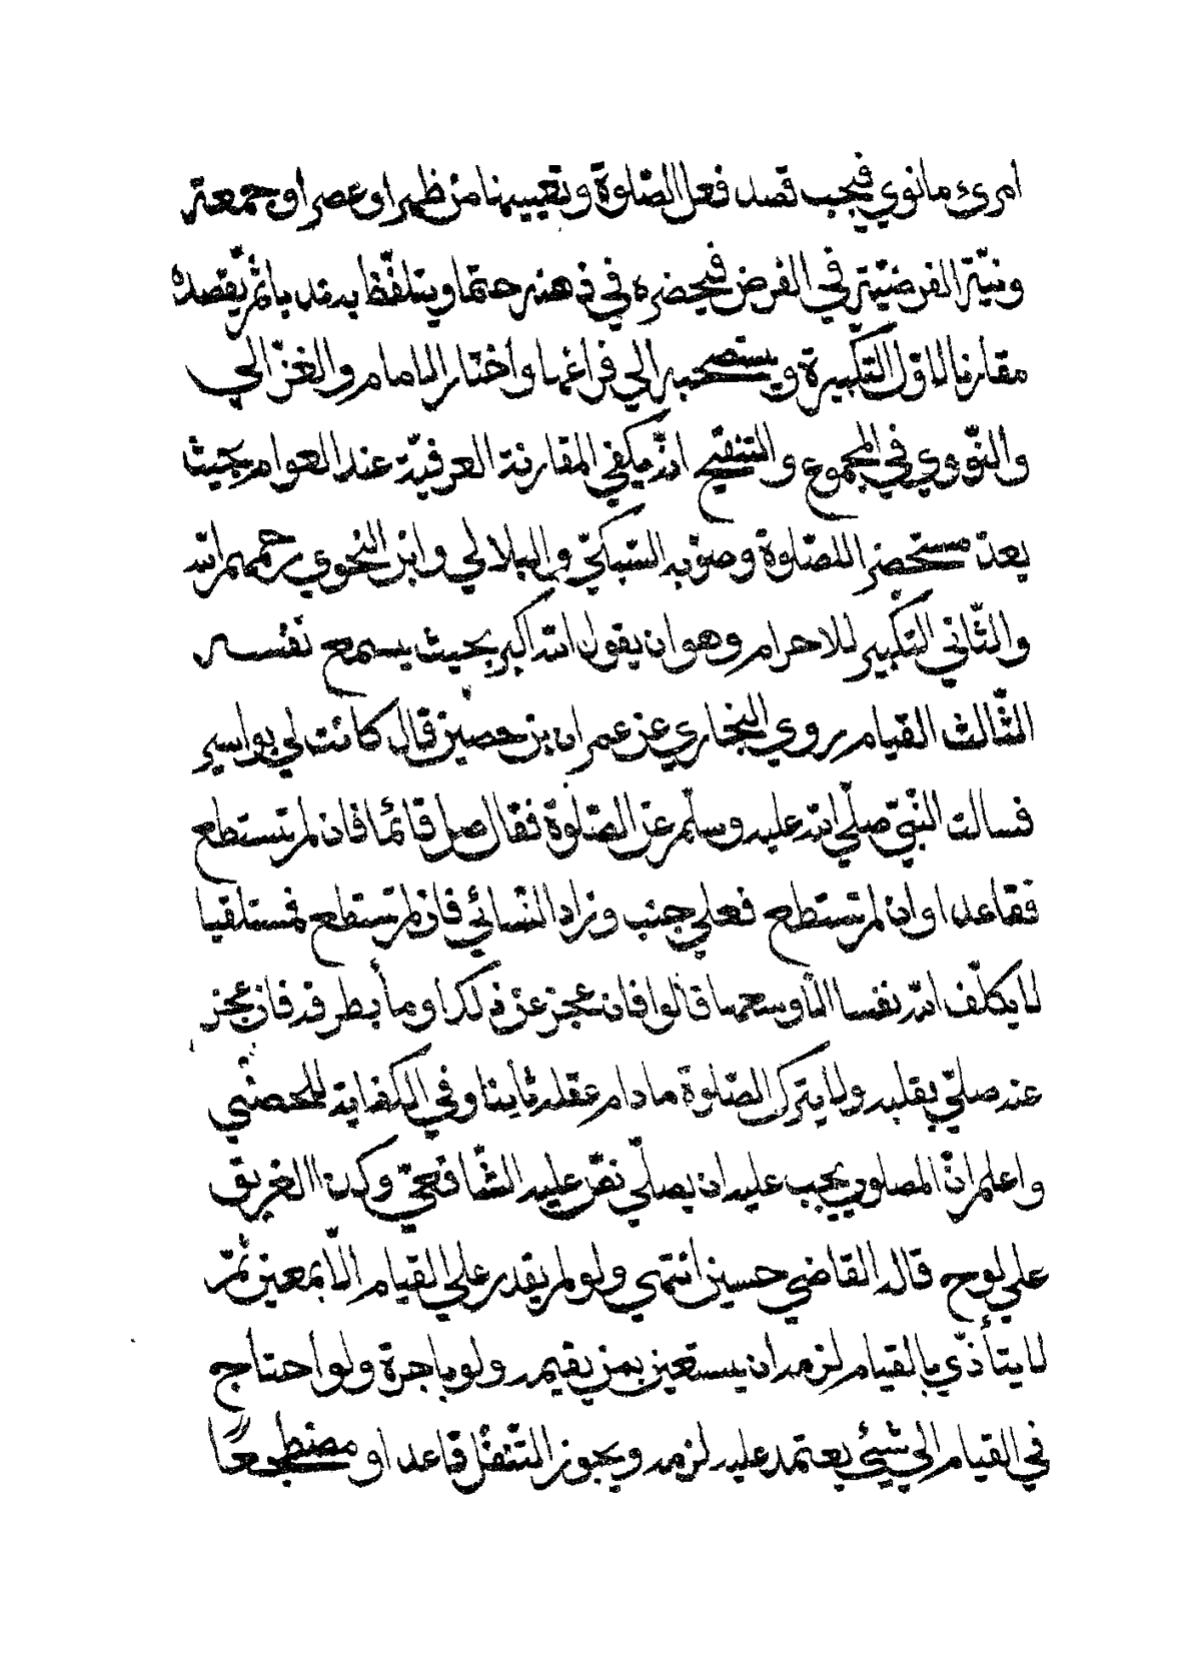 امرئ ما نوي فيجب قصد فعل الصّلوة وتعيينها من ظهر او عصر او جمعة
ونيّة الفرضيّة في الفرض فيحضره في ذهنه حتما ويتلفّظ به ندبا ثمّ يقصده
مقارنا لاوّل التكبيرة ويستصحبه الي فراغها واختار الامام والغزّالي
والنّووي في المجموع والتنقيح انّه يكفي المقارنة العرفيّة عند العوام بحيث
يعدّ مستحضرا للصّلوة وصوّبه السّبكيّ والبلالي وابن النحوي رحمهم الله
والثّاني التكبير للاحرام وهو ان يقول الله اكبر بحيث يسمع نفسه
الثّالث القيام روي البخاري عن عمران بن حصين قال كانت لي بواسير
فسالت النّبيّ صلّي الله عليه وسلّم عن الصّلوة فقال صل قائما فان لم تستطع
فقاعدا وان لم تستطع فعلي جنب وزاد النّسائي فان لم تستطع فمستلقيا
لا يكلّف الله نفسا الّا وسعها قالوا فان عجز عن ذلك اومأ بطرفه فان عجز
عنه صلّي بقلبه ولا يترك الصّلوة ما دام عقله ثابتا وفي الكفاية للحصني
واعلم انّ المصلوب يجب عليه ان يصلّي نصّ عليه الشّافعيّ وكذا الغريق
علي لوح قاله القاضي حسين انتهي ولو لم يقدر علي القيام الّا بمعين ثمّ
لا يتأذّي بالقيام لزمه ان يستعين بمن يقيمه ولو باجرة ولو احتاج
في القيام الي شيئ يعتمد عليه لزمه ويجوز التّنفّل قاعدا ومضطجعًا